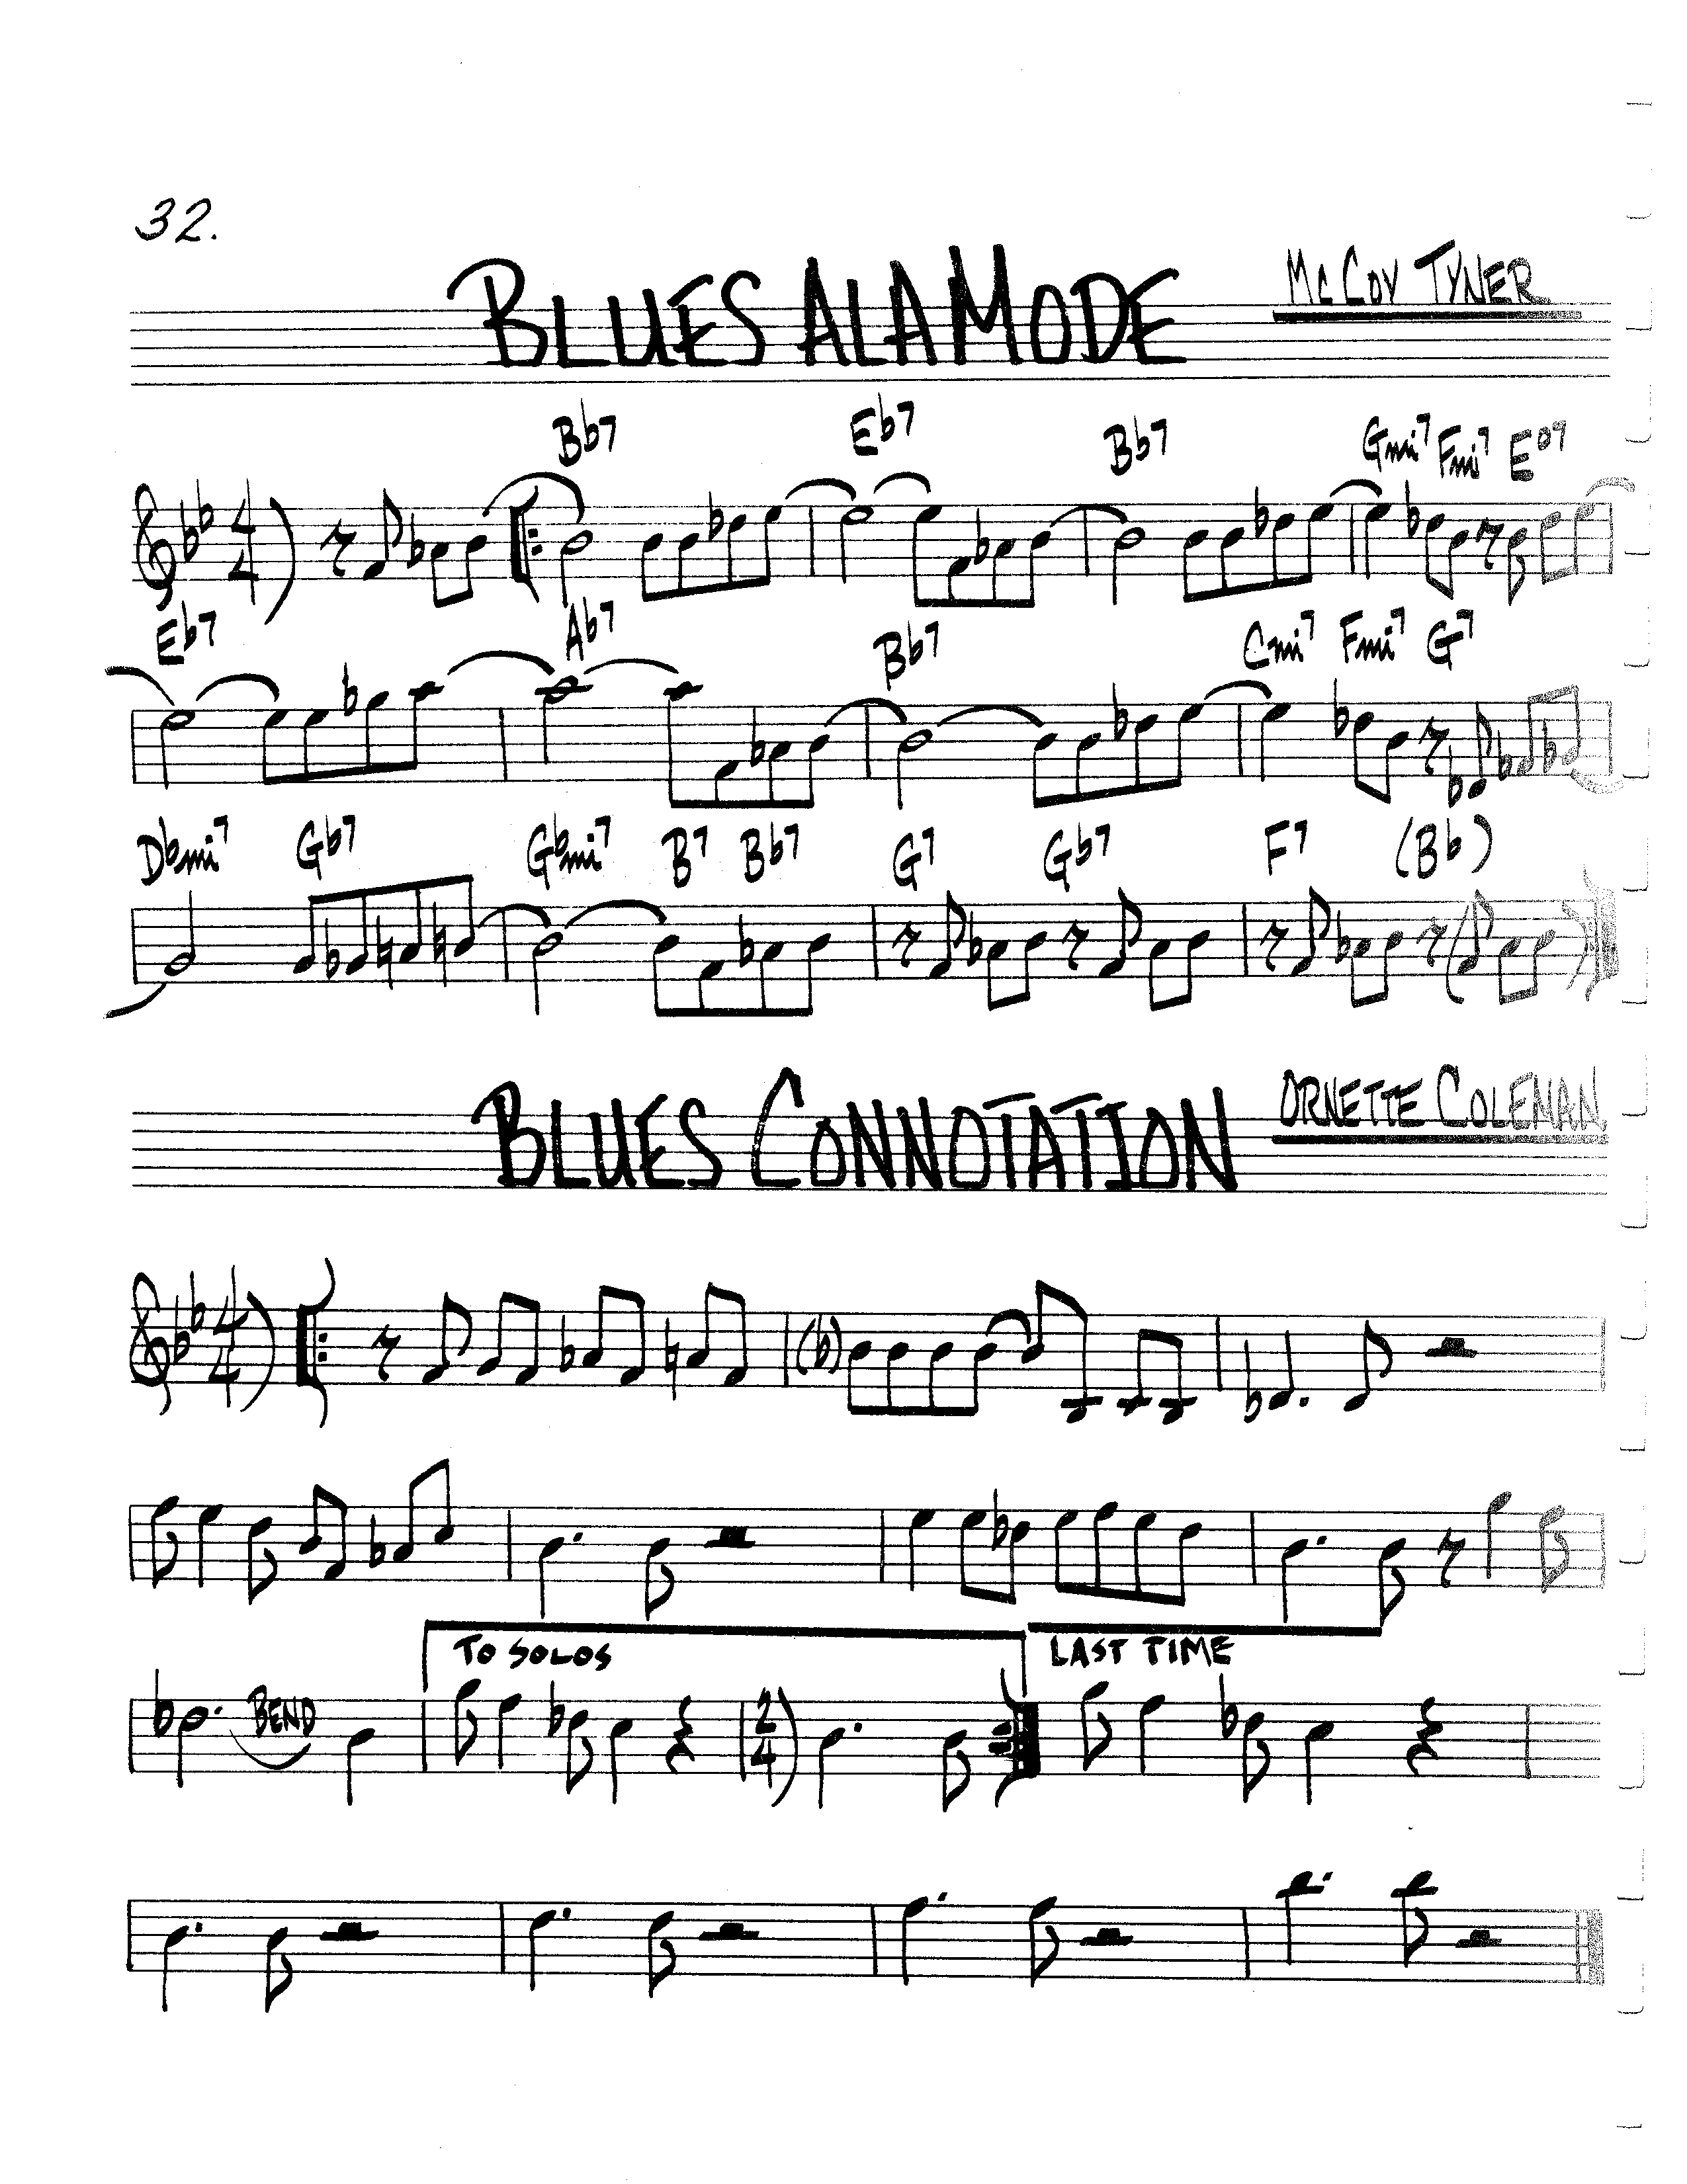 32.
BLUES ALA MODE
McCOY TYNER
Bb7 Eb7 Bb7 Gmi7 Fmi7 Eo7
4
4
Eb7 Ab7 Bb7 Cmi7 Fmi7 G7
Dbmi7 Gb7 Gbmi7 B7 Bb7 G7 Gb7 F7 (Bb)
BLUES CONNOTATION
ORNETTE COLEMAN
4
4
TO SOLOS LAST TIME
BEND
2
4